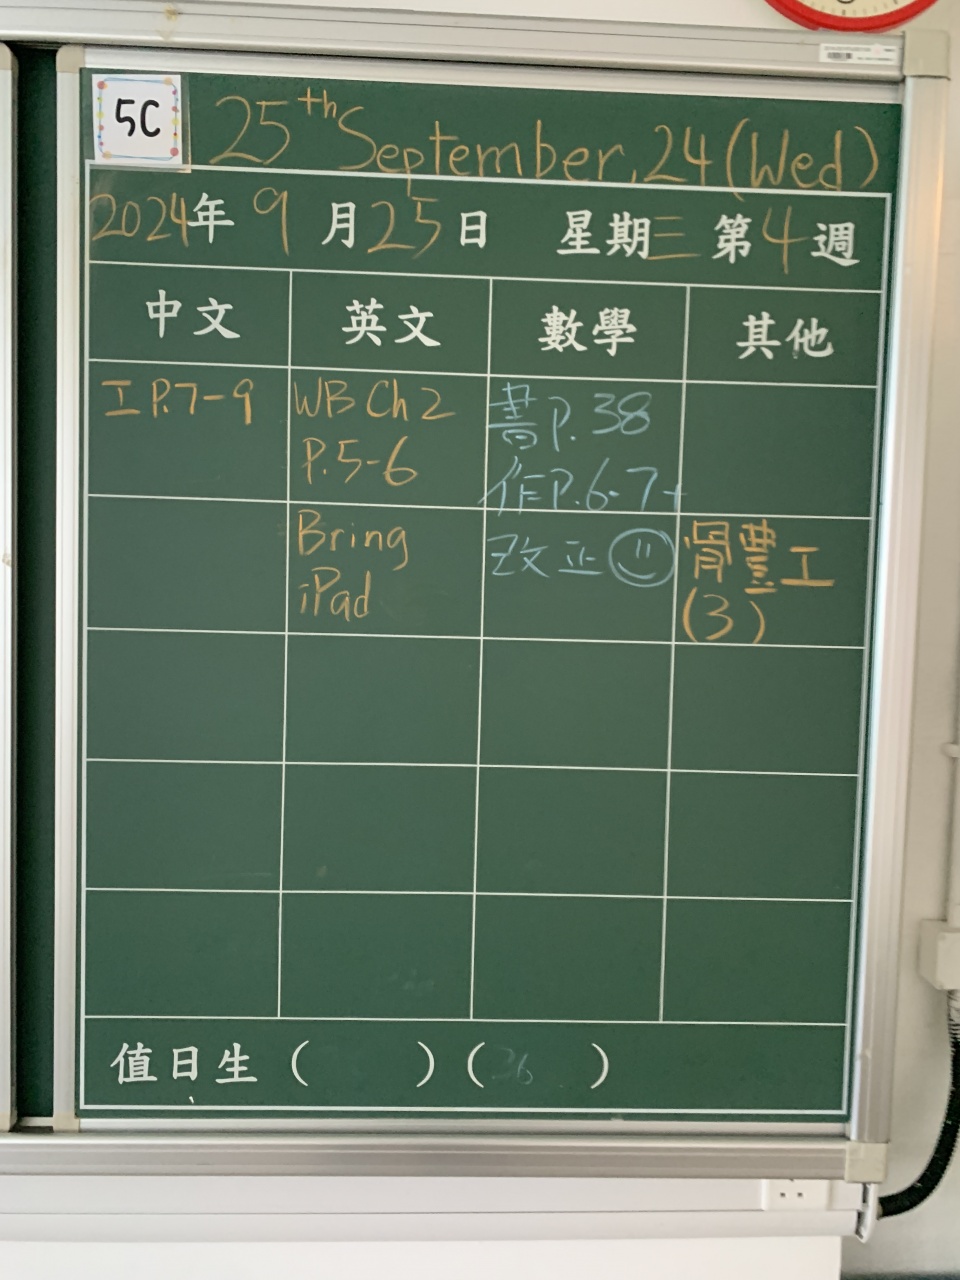 5C
25th September, 24 (Wed)
2024年 9 月 25 日 星期三 第 4 週
中文 英文 數學 其他
工 P.7-9
WB Ch 2
P.5-6
書 P.38
作 P.6-7+
Bring
iPad
改正
工
(3)
值日生 ( ) (36 )